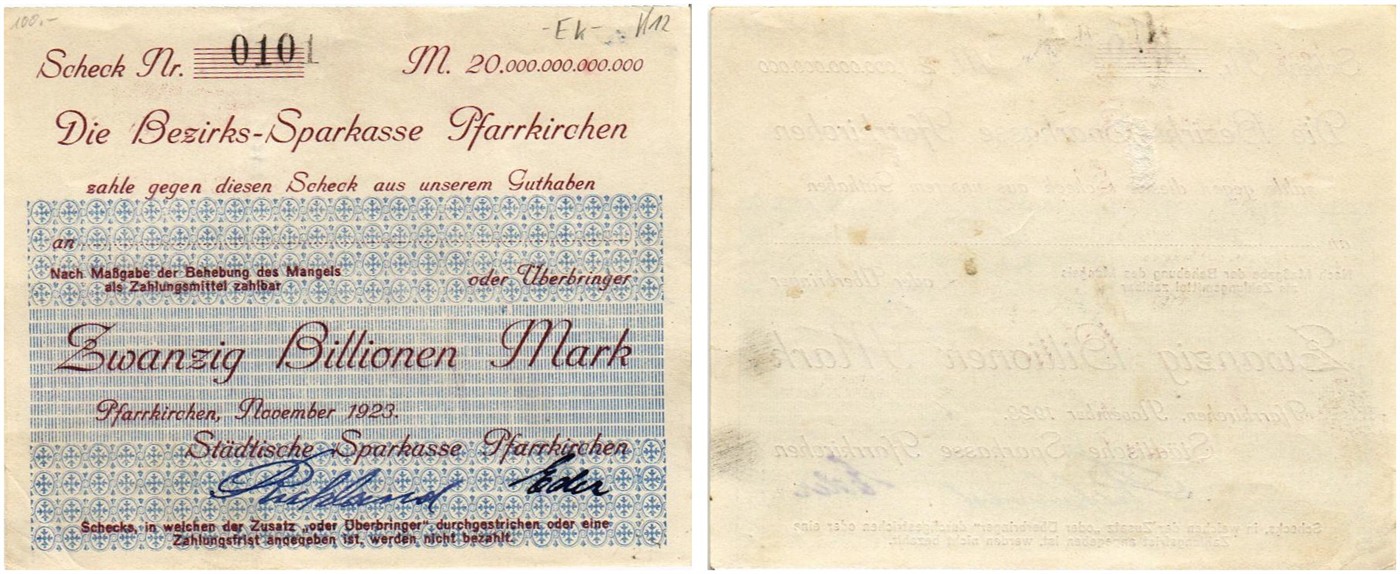 100.-
-EK- H12
Scheck Nr. 0101 M. 20.000.000.000.000
Die Bezirks-Sparkasse Pfarrkirchen
zahle gegen diesen Scheck aus unserem Guthaben
an
Nach Maßgabe der Behebung des Mangels
als Zahlungsmittel zahlbar
oder Überbringer
Zwanzig Billionen Mark
Pfarrkirchen, November 1923.
Städtische Sparkasse Pfarrkirchen
Eder
Schecks, in welchen der Zusatz „oder Überbringer" durchgestrichen oder eine
Zahlungsfrist angegeben ist, werden nicht bezahlt.